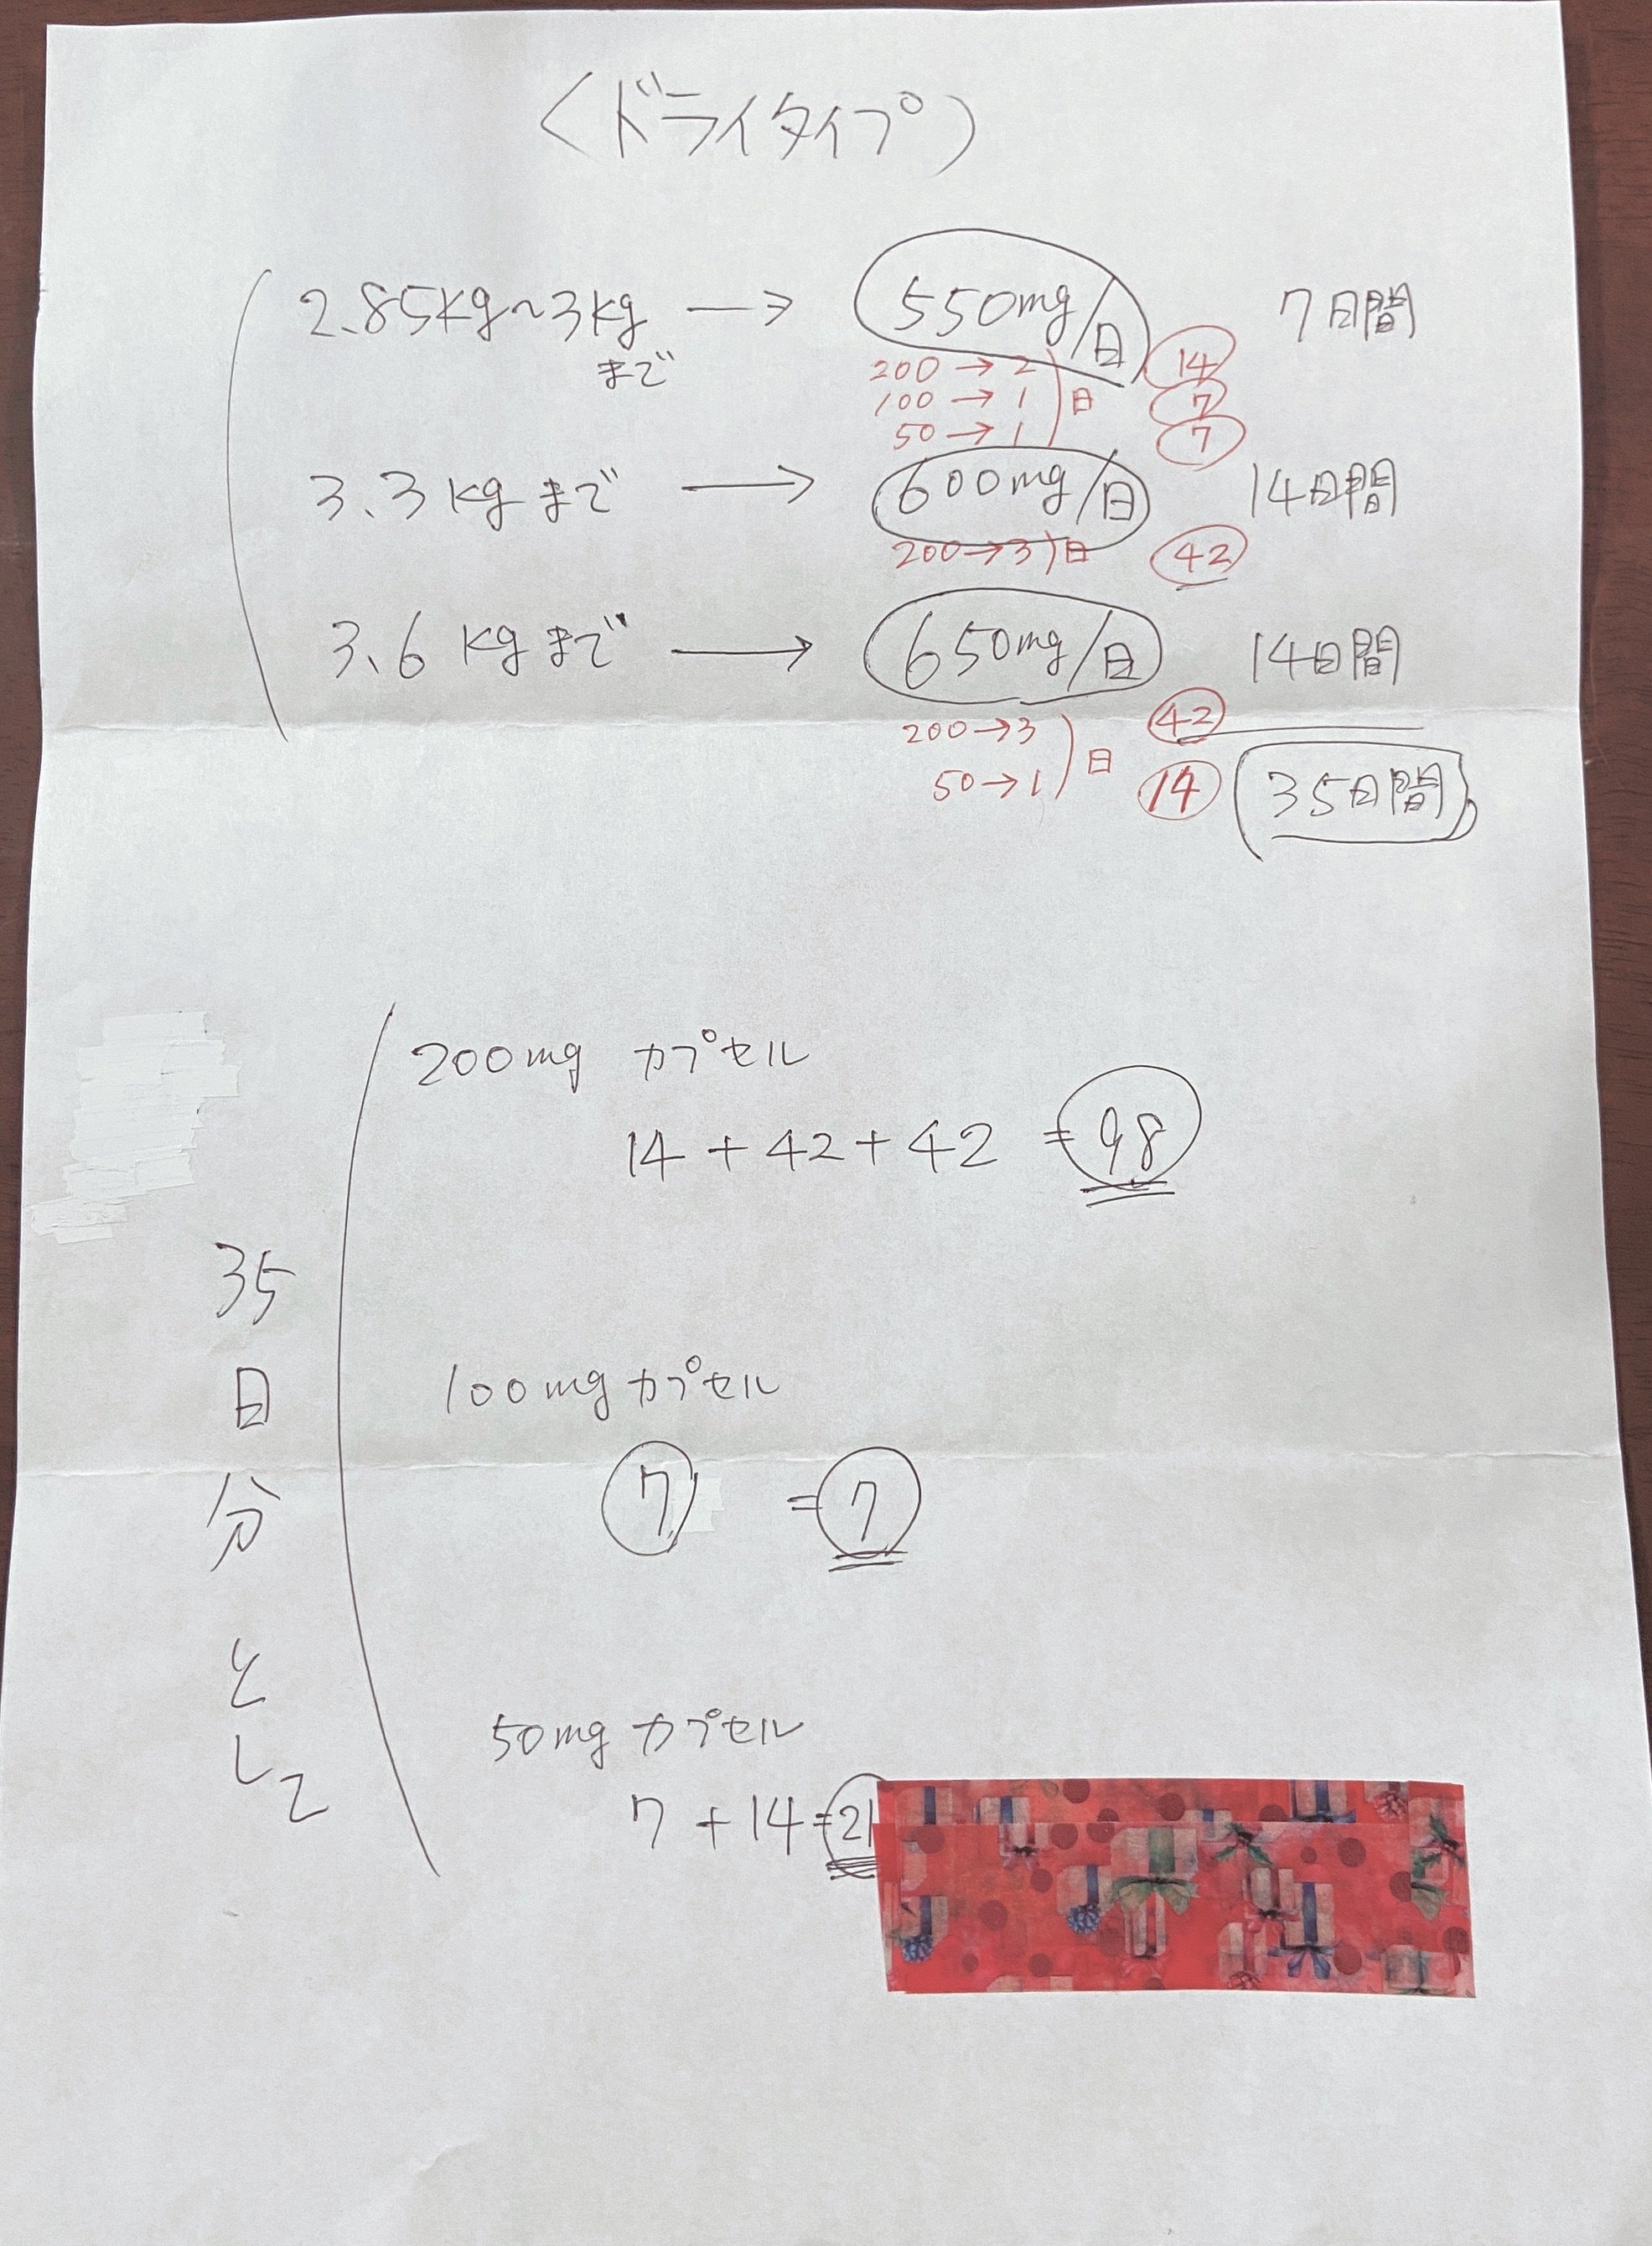 〈ドライタイプ〉
2.85kg~3kg → 550mg/日 7日間
まで
200→2
100→1
50→1
日
14
7
7
3.3kgまで → 600mg/日 14日間
200→3)日 42
3.6kgまで → 650mg/日 14日間
200→3
50→1
日
42
14
35日間
35日分として
200mg カプセル
14+42+42=98
100mg カプセル
7 =7
50mg カプセル
7+14=21